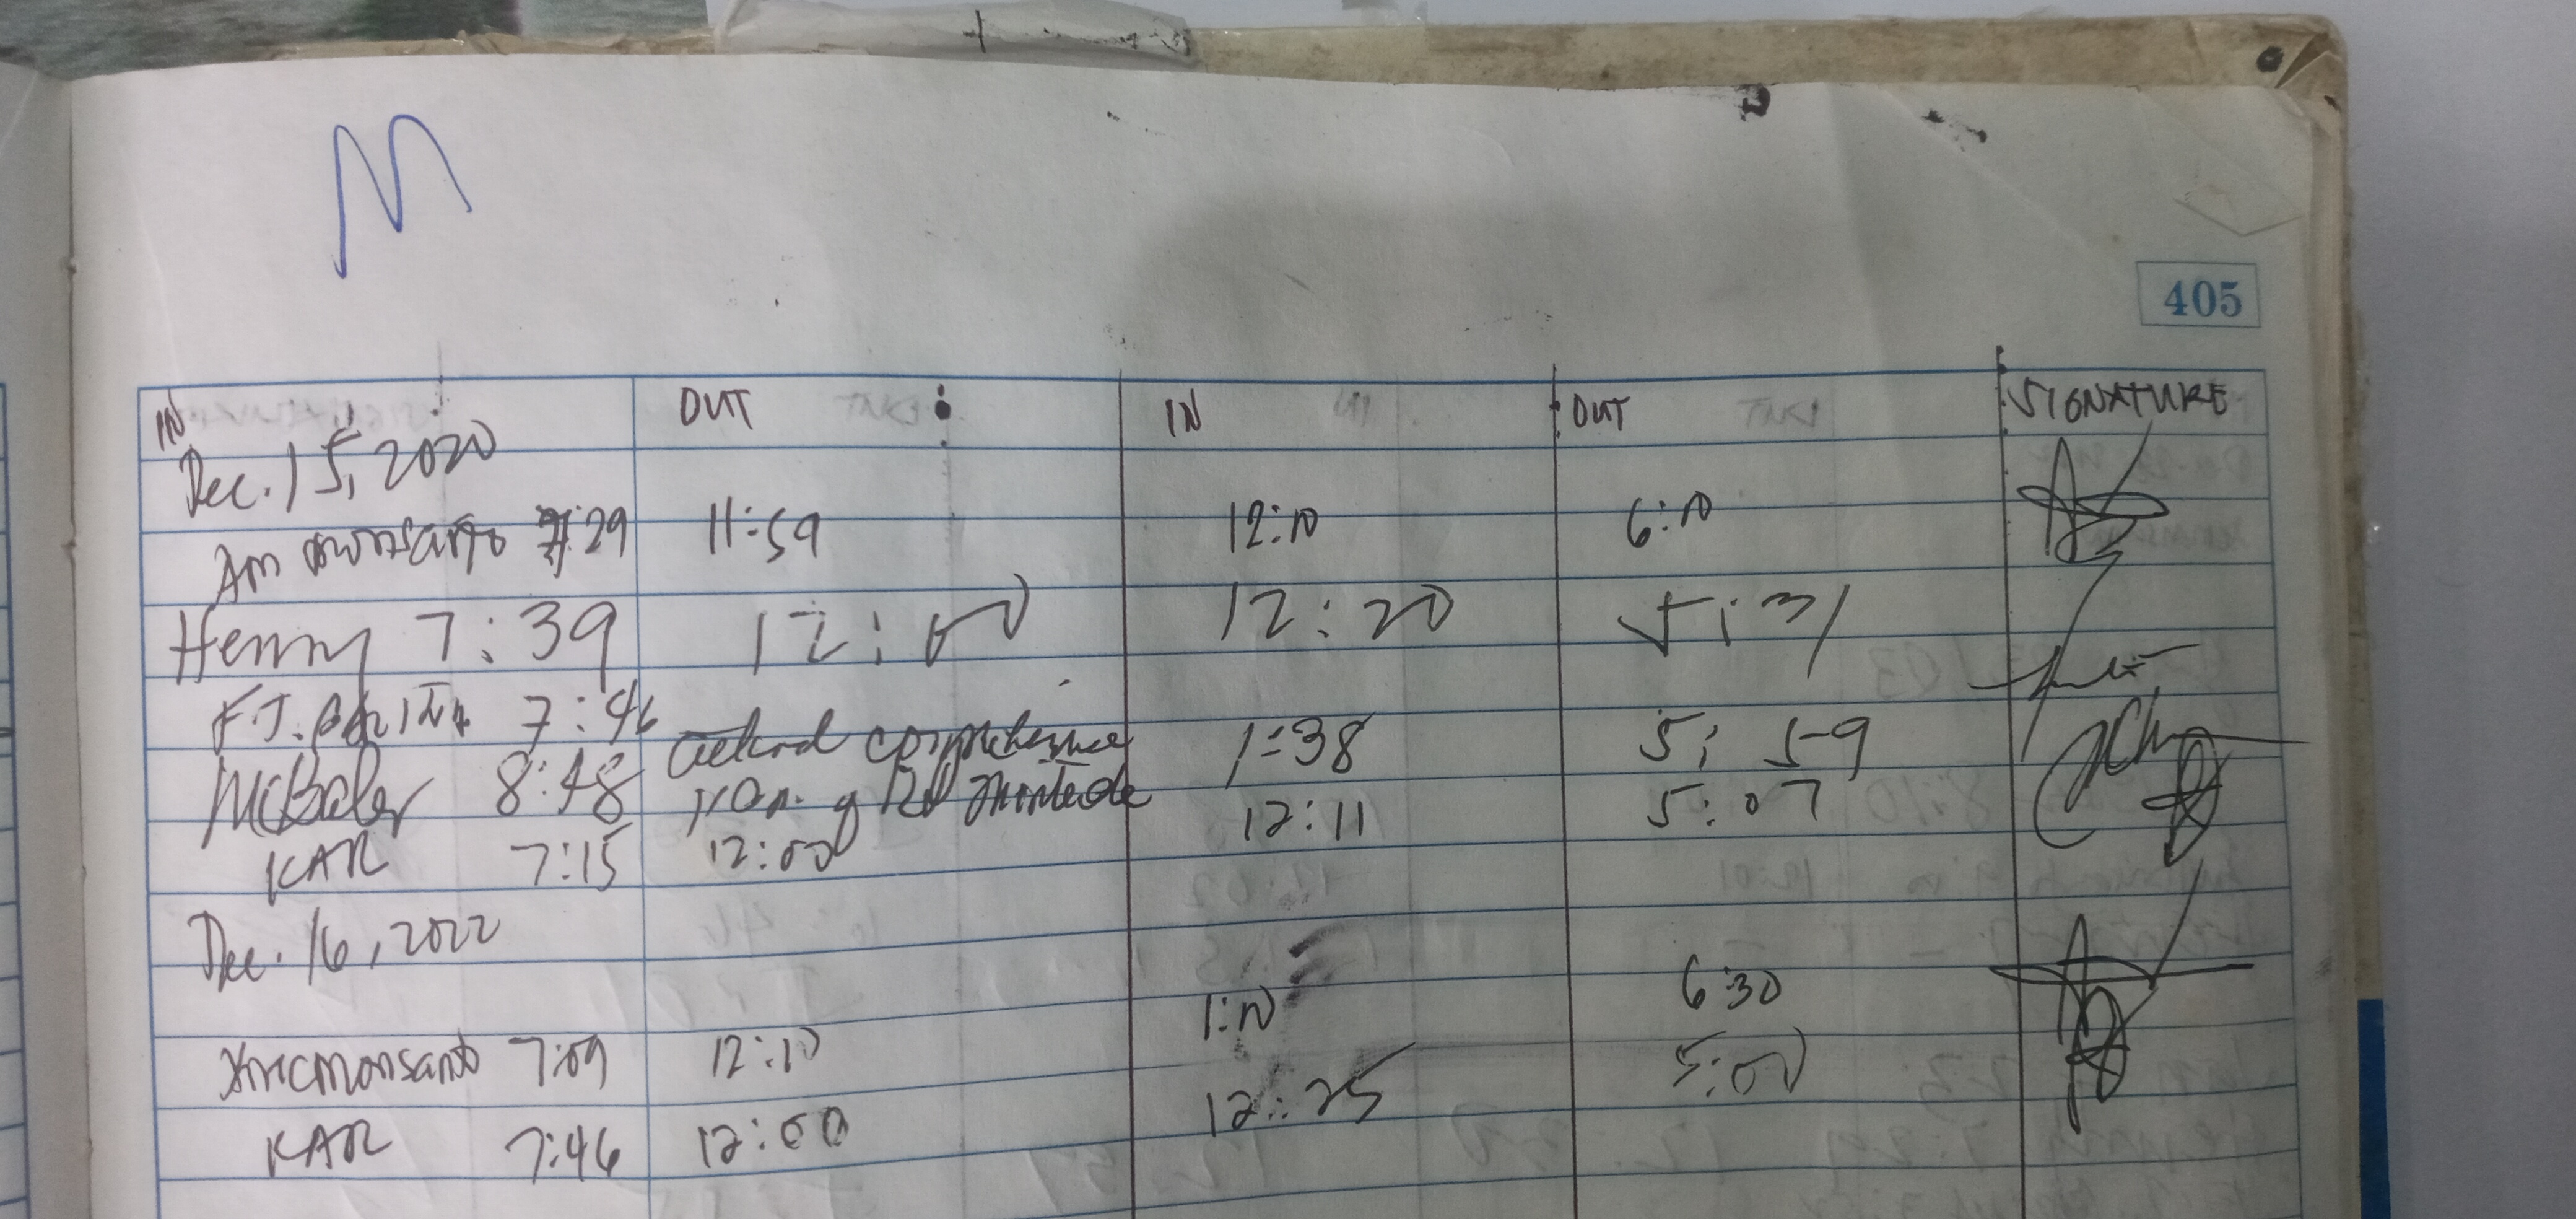 M
405
IN OUT IN OUT SIGNATURE
Dec. 15, 2020
Am monsanto 7:29 11:59 12:10 6:10
Henny 7:39 12:00 12:20 5:31
F.J. 7:46
McBaler 8:48 attend comprehensive 1:38 5:59
of 12:11 5:07
KAR 7:15 12:00
Dec. 16, 2022
monsanto 7:09 12:10 1:10 6:30
KAR 7:46 12:00 12:25 5:00